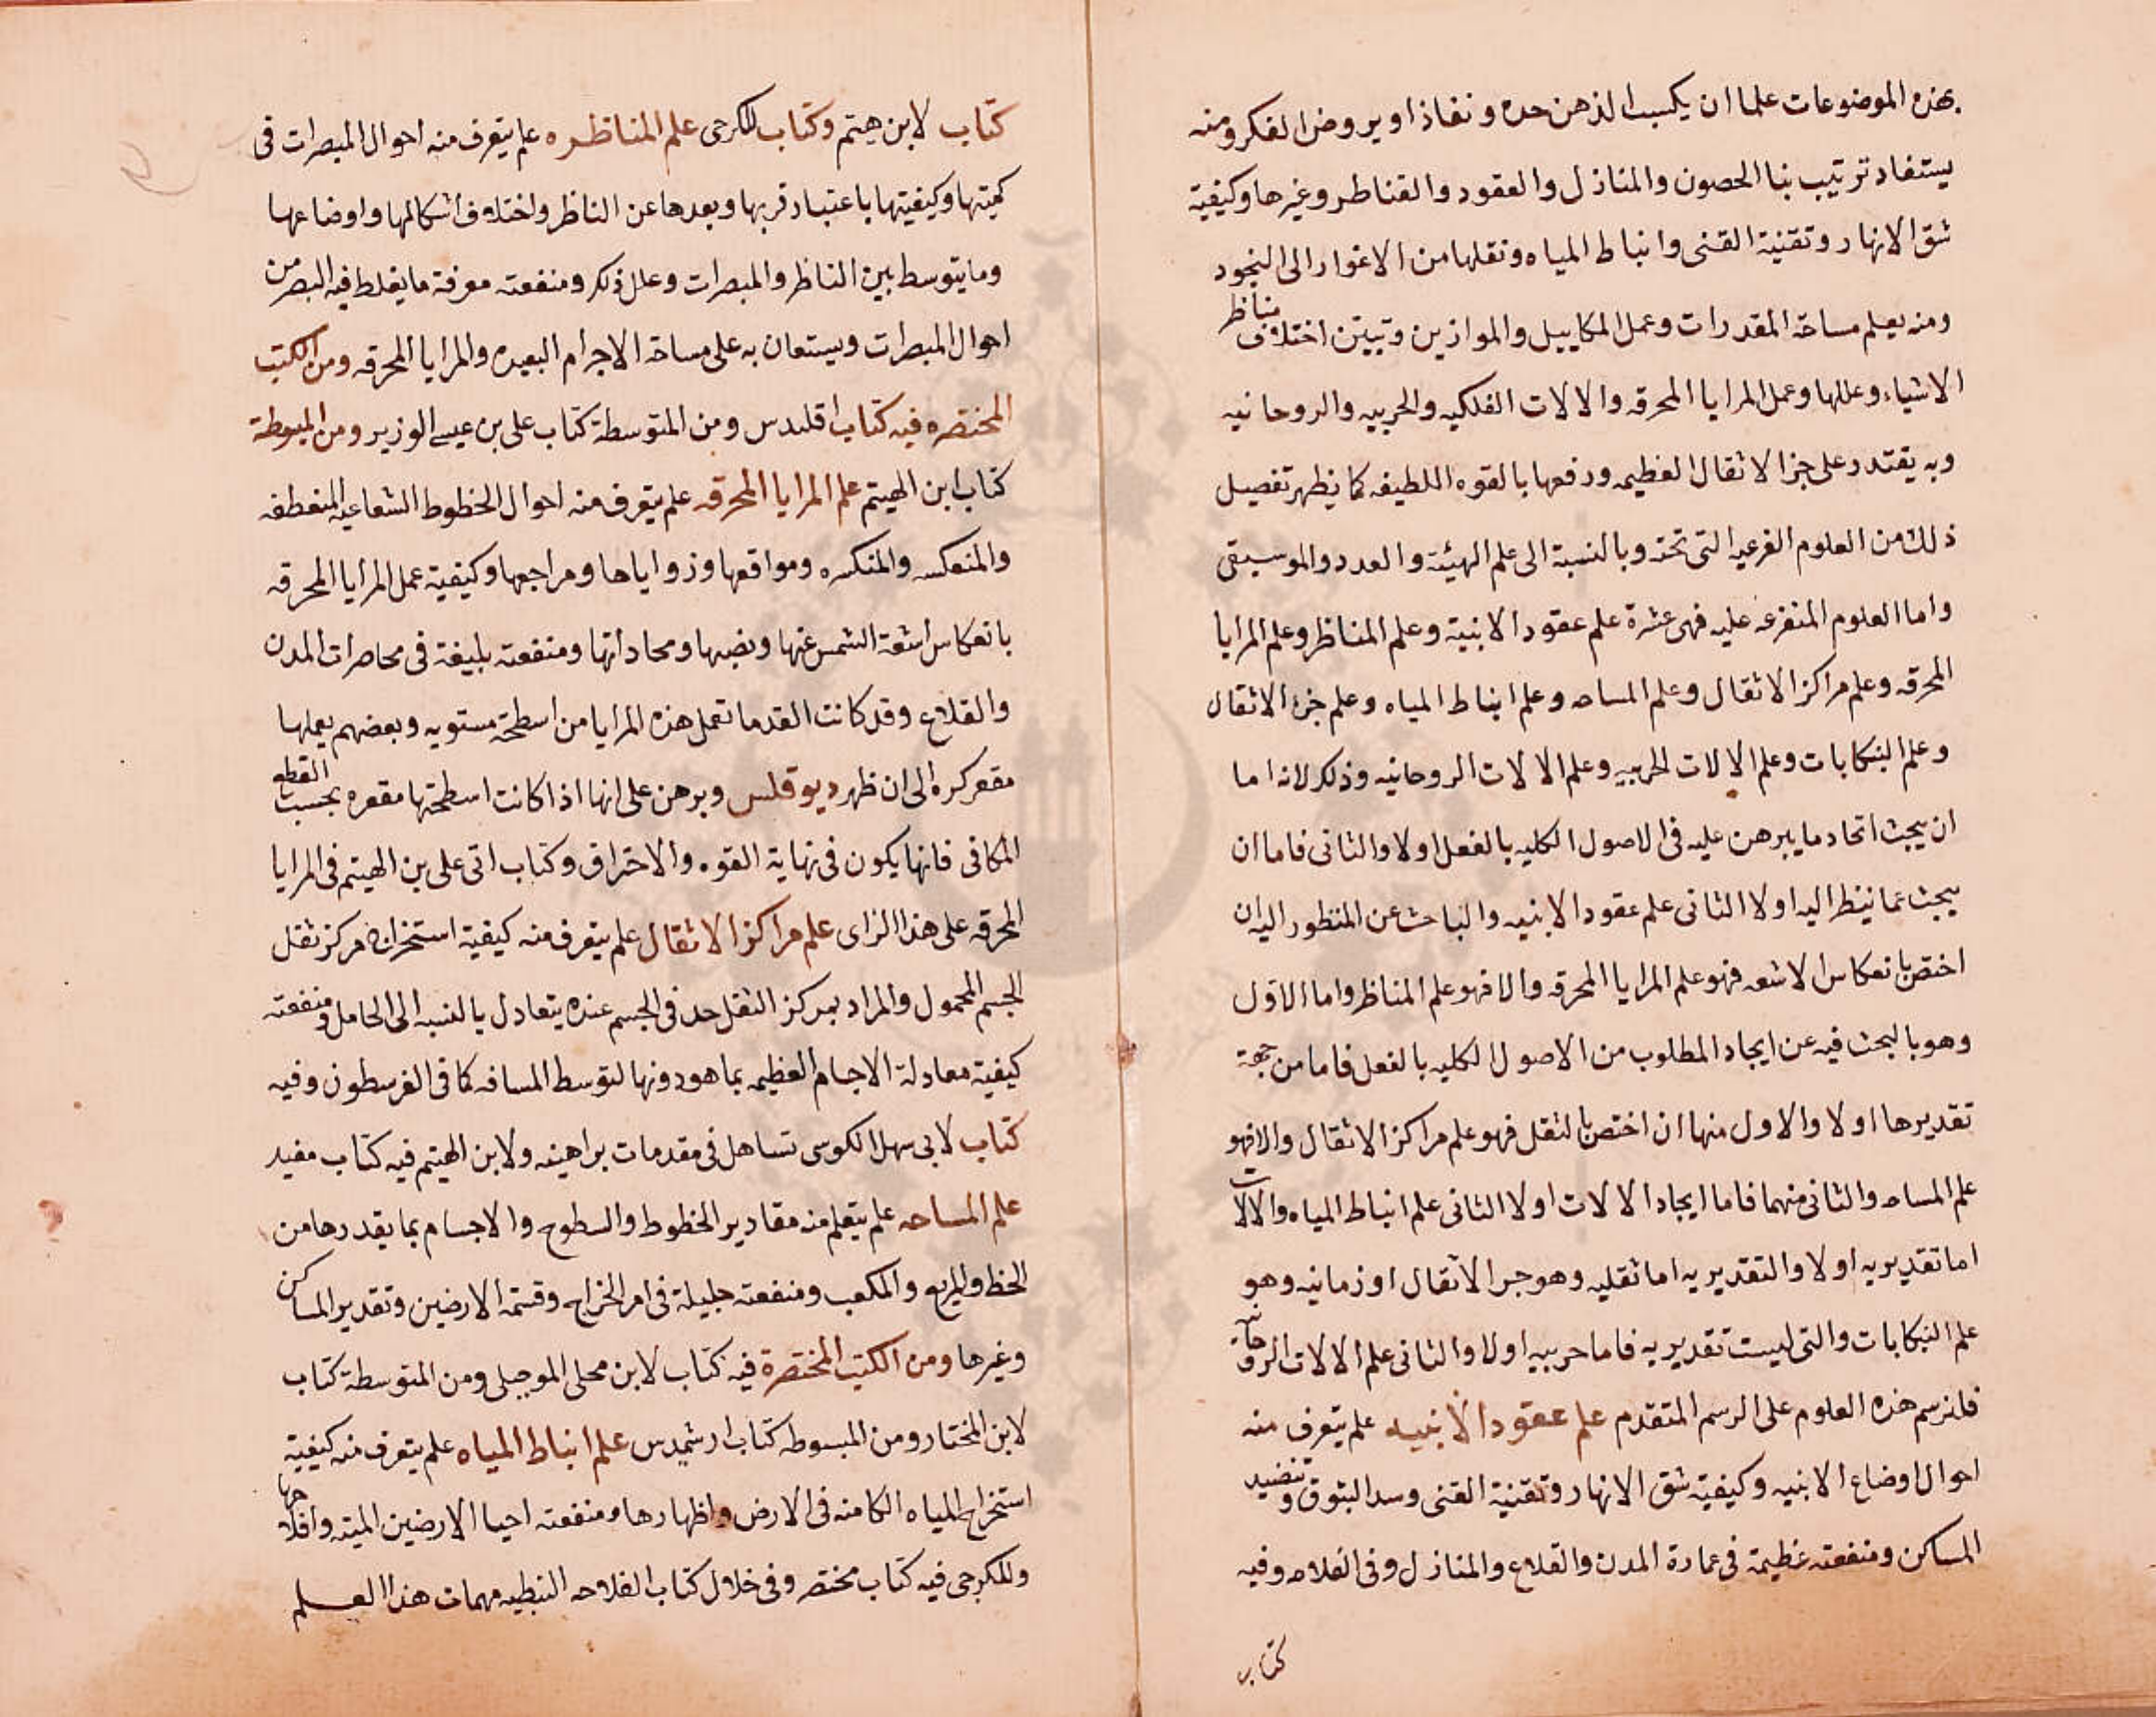 بهذه الموضوعات علما ان يكسب الذهن حده ونفاذا ويروض الفكر ومنه
يستفاد ترتيب بنا الحصون والمنازل والعقود والقناطر وغيرها وكيفية
شق الانهار وتقنية القنى وانباط المياه ونقلها من الاغوار الى النجود
ومنه يعلم مساحة المقدرات وعمل المكاييل والموازين وتبين اختلاف مناظر
الاشياء وعللها وعمل المرايا المحرقه والالات الفلكيه والحربيه والروحانيه
وبه يقتدر على جز الاثقال العظيمه ورفعها بالقوه اللطيفه كما يظهر تفصيل
ذلك من العلوم الفرعيه التى تحته وبالنسبة الى علم الهيئة والعدد والموسيقى
واما العلوم المتفرعه عليه فهى عشرة علم عقود الابنية وعلم المناظر وعلم المرايا
المحرقه وعلم مراكز الاثقال وعلم المساحه وعلم انباط المياه وعلم جز الاثقال
وعلم البنكابات وعلم الالات الحربيه وعلم الالات الروحانيه وذلك لانه اما
ان يبحث اتحاد ما يبرهن عليه فى الاصول الكليه بالفعل اولا والثانى فاما ان
يبحث عما ينظر اليه اولا الثانى علم عقود الابنيه والباحث عن المنظور اليه ان
اختص بانعكاس الاشعه فهو علم المرايا المحرقه والا فهو علم المناظر واما الاول
وهو بالبحث فيه عن ايجاد المطلوب من الاصول الكليه بالفعل فاما من جهة
تقديرها اولا والاول منها ان اختص بالثقل فهو علم مراكز الاثقال والا فهو
علم المساحه والثانى منهما فاما ايجاد الالات اولا الثانى علم انباط المياه والالات
اما تقديريه اولا والتقديريه اما ثقليه وهو جر الاثقال او زمانيه وهو
علم البنكابات والتى ليست تقديريه فاما حربيه اولا والثانى علم الالات الروحانيه
فلنرسم هذه العلوم على الرسم المتقدم علم عقود الابنيه علم يتعرف منه
احوال اوضاع الابنيه وكيفية شق الانهار وتقنية القنى وسد البثوق وتنضيد
المساكن ومنفعته عظيمة فى عمارة المدن والقلاع والمنازل وفى الفلاحه وفيه
كتاب
كتاب لابن هيتم وكتاب للكرجى علم المناظره علم يتعرف منه احوال المبصرات فى
كميتها وكيفيتها باعتبار قربها وبعدها عن الناظر واختلاف اشكالها واوضاعها
وما يتوسط بين الناظر والمبصرات وعلل ذلك ومنفعته معرفة ما يغلط فيه البصر من
احوال المبصرات ويستعان به على مساحة الاجرام البعيده والمرايا المحرقه ومن الكتب
المختصره فيه كتاب اقلىدس ومن المتوسطة كتاب على بن عيسى الوزير ومن المبسوطة
كتاب ابن الهيتم علم المرايا المحرقه علم يتعرف منه احوال الخطوط الشعاعيه المنعطفه
والمنعكسه والمنكسره ومواقعها وزواياها ومراجعها وكيفية عمل المرايا المحرقه
بانعكاس اشعة الشمس عنها ونصبها ومحاداتها ومنفعته بليغة فى محاصرات المدن
والقلاع وقد كانت القدما تعمل هذه المرايا من اسطحة مستويه وبعضهم يعملها
مقعر كره الى ان ظهر ديوقلس وبرهن على انها اذا كانت اسطحتها مقعره بحسب القطع
المكافى فانها يكون فى نهاية القوه والاحتراق وكتاب اتى على بن الهيتم فى المرايا
المحرقه على هذا الراى علم مراكز الاثقال علم يتعرف منه كيفية استخراج مركز ثقل
الجسم المحمول والمراد بمركز الثقل حد فى الجسم عنده يتعادل بالنسبه الى الحامل ومنفعته
كيفية معادلة الاجسام العظيمه بما هو دونها لتوسط المسافه كما فى الفرسطون وفيه
كتاب لابى سهل الكوسى تساهل فى مقدمات براهينه ولابن الهيتم فيه كتاب مفيد
علم المساحه علم يتعلم منه مقادير الخطوط والسطوح والاجسام بما يقدرها من
الخط والمربع والمكعب ومنفعته جليلة فى امر الخراج وقسمة الارضين وتقدير المساكن
وغيرها ومن الكتب المختصرة فيه كتاب لابن محلى الموجلى ومن المتوسطة كتاب
لابن المختار ومن المبسوطه كتاب ارشمىدس علم انباط المياه علم يتعرف منه كيفية
استخراج المياه الكامنه فى الارض واظهارها ومنفعته احيا الارضين الميته وافلاحها
وللكرجى فيه كتاب مختصر وفى خلال كتاب الفلاحه النبطيه مهمات هذا العلم